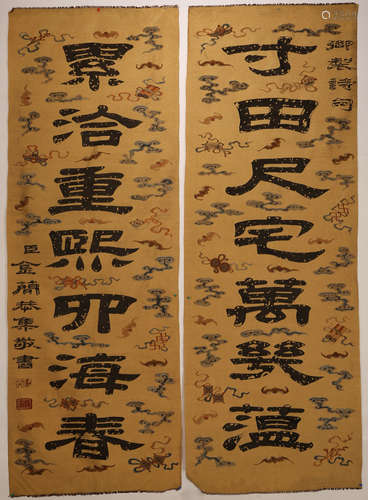 御製詩句
寸田尺宅萬幾蕰
累洽重熙卯海春
臣金簡恭集敬書